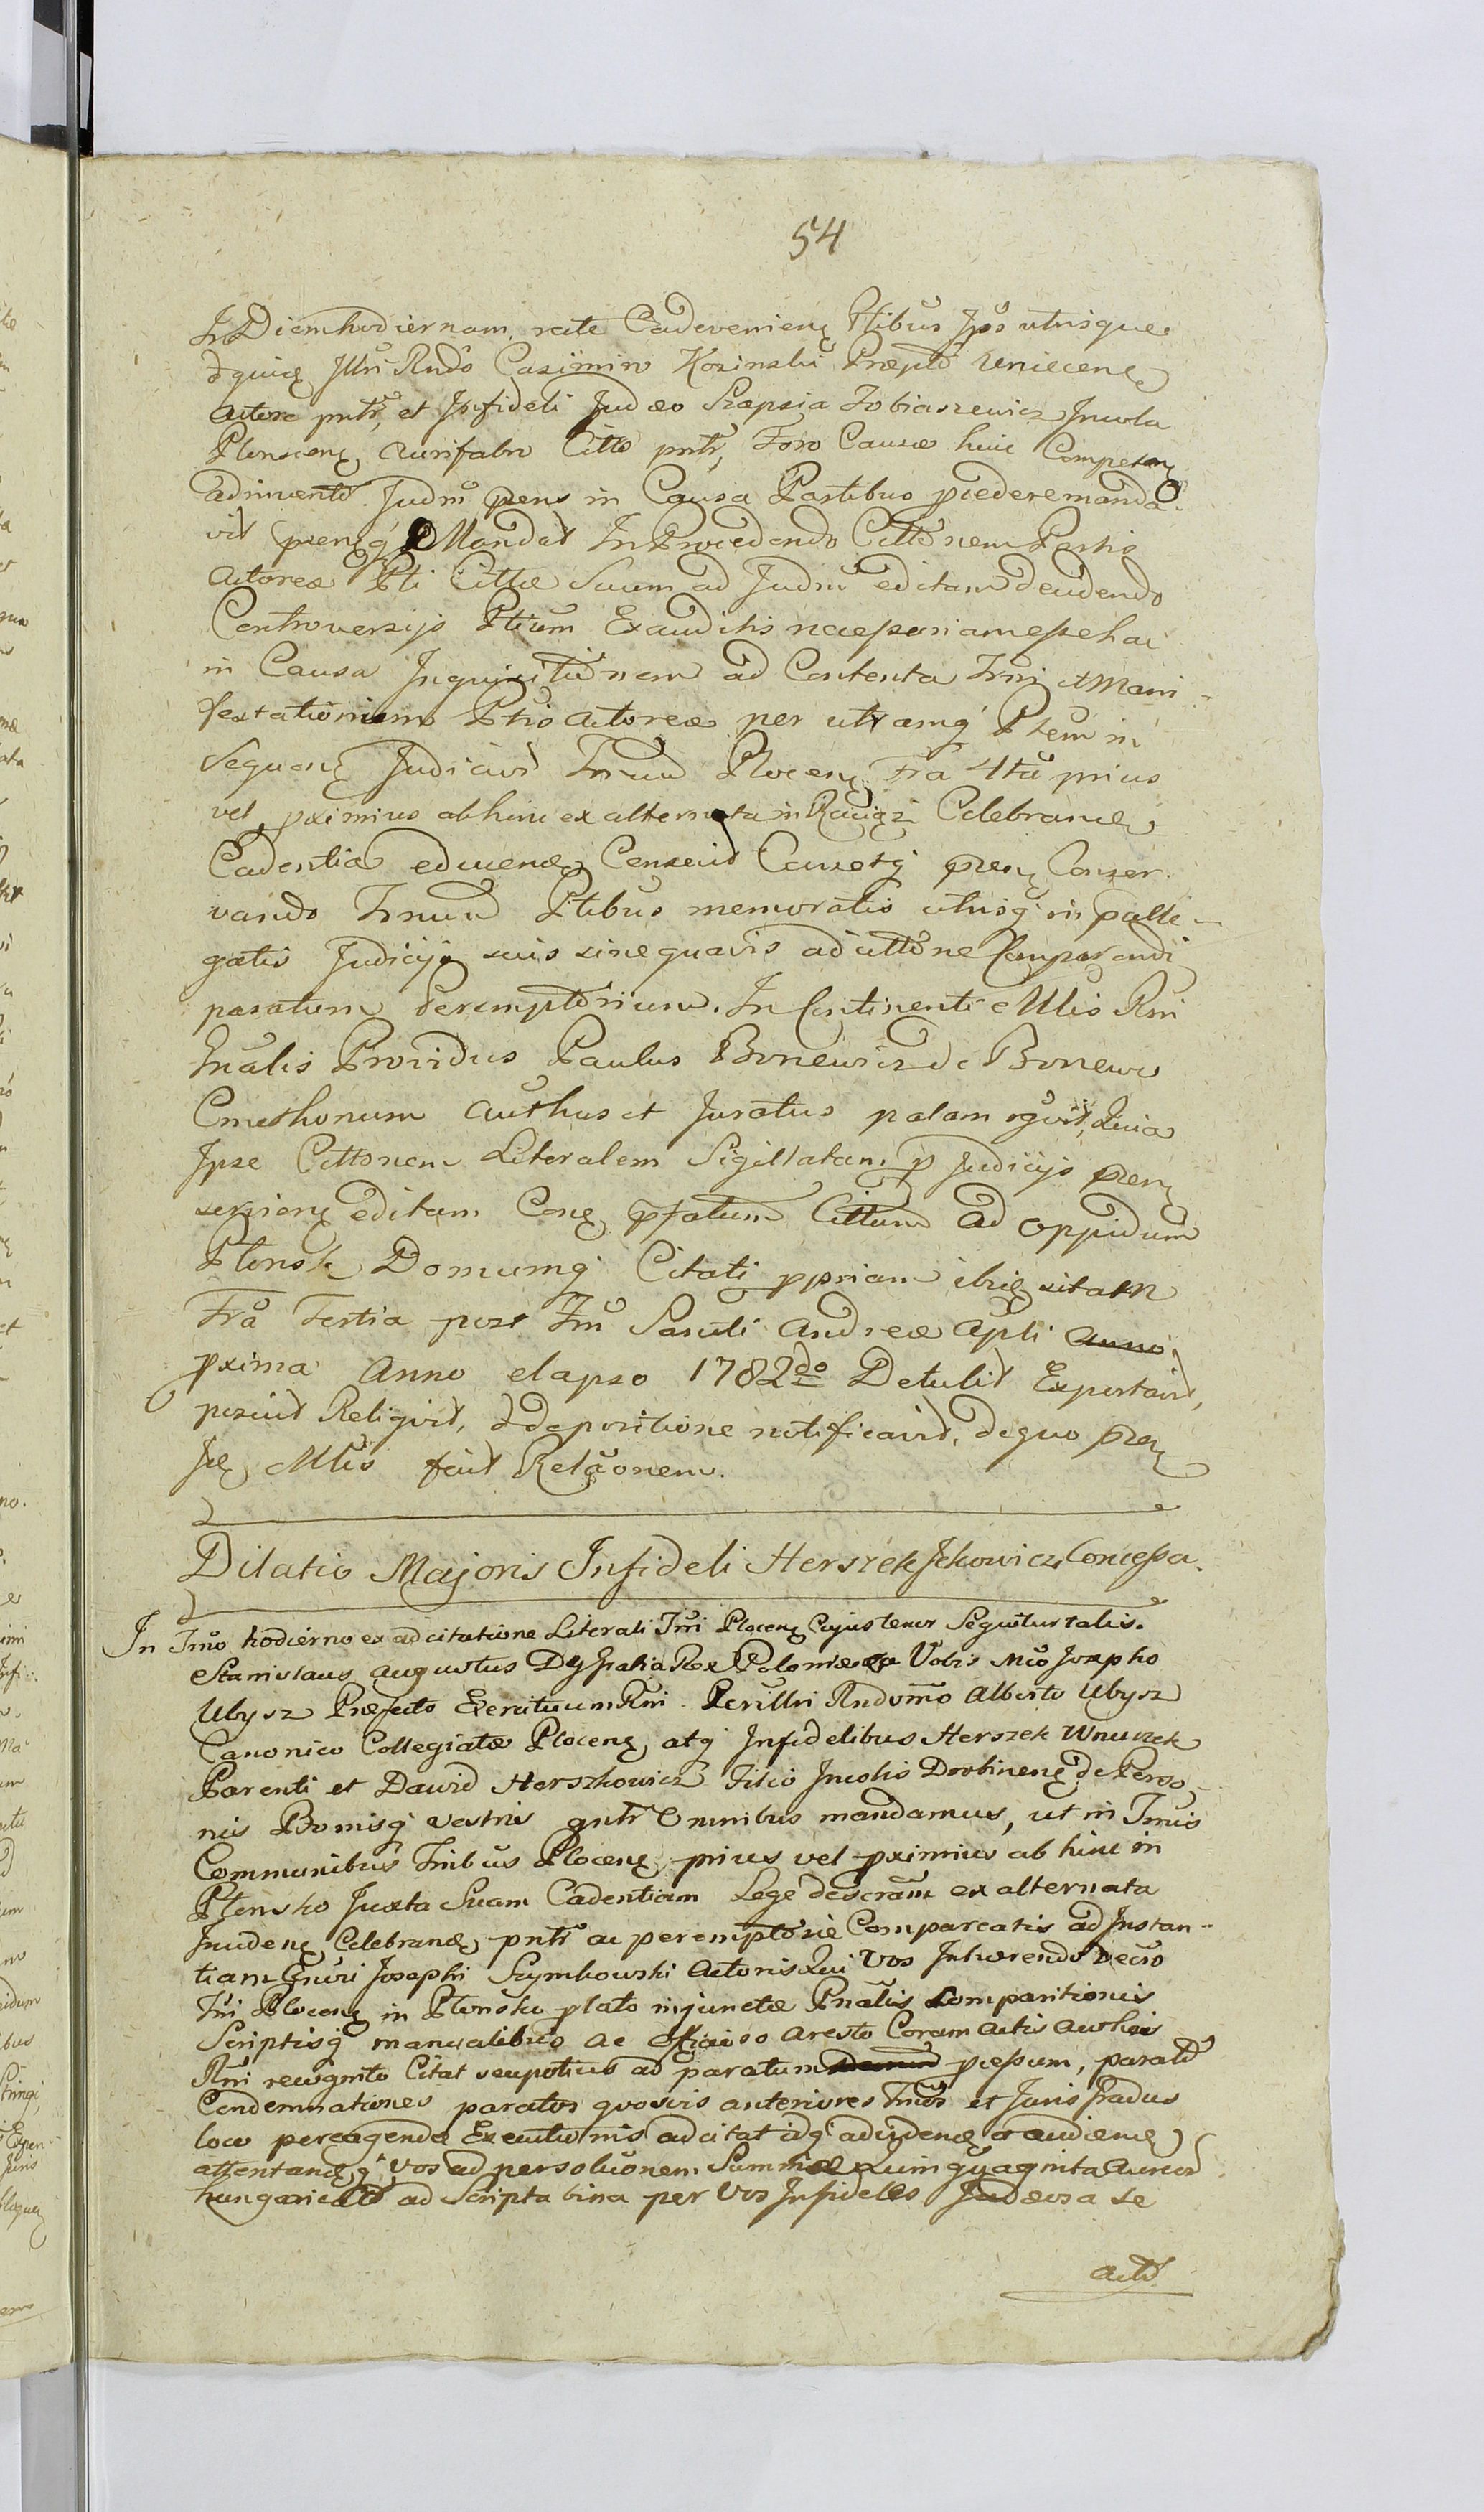 54
In Diem hodiernam rate Cadevenienę Ptibus Ips utrisque
Illri Rndo Casimiro Kosinski Præpto
Actore pntr, et Infideli Judæo Szapsia Tobiaszewicz Incola
Plonscenę Aurifabro Citto pntr, Foro Causæ huic Competenę
adinvento Judm prens in Causa Partibus pcedere manda-
vit prenę Mandat In Procedendo Cittonem Partis
Actoreæ Pti Cittæ Suum ad Judm editam deudendo
Controversijs Ptium Exauditis necessariam esse hac
in Causa Inquisitionem ad Contenta Trni et Mani-
festationem Ptis Actoreæ per utramq Ptem in
Sequenę Judicior Trnud Plocenę Fra 4ta prius
vel pximius abhinc ex alternata in Raciąż Celebrandę
Cadentia educendę Censuit Censetq prenę Conser-
vando Trnum Ptibus memoratis utrisq in palle-
gatis Judicijs suis sine quavis adcittone Comparendi
paratum Peremptorium. In Continenti Mlis Rni
Gnalis Providus Paulus Boniewicz de Boniewo
Cmethonum authus et Juratus palam rgvit, Quia
Ipse Cittonem Literalem Sigillatam p Judicijs prenę
editam Conę pfatum Cittum ad oppidum
Plonsk Domumq Citati ppriam ibię sitam
Fra Tertia post Fm Sancti Andreæ Apli Anno
pxima Anno elapso 1782do Detulit Exportavit,
posuit Reliquit, et de positione notificavit, de quo prenę
Ię Mlis fecit Relaonem.
Dilatio Majoris Infideli Herszek Ickowicz Concessa.
In Trno hodierno ex adcitatione Literali Trni Plocenę Cujus tenor Sequitur talis.
Stanislaus Augustus DG Gratia Rex Poloniæ Vobis Mco Josepho
Ubysz Præfecto Exercituum Rni Perillri Rndomo Alberto Ubysz
Canonico Collegiatæ Plocenę, atq Infidelibus Herszek Wnuczek
Parenti et Dawid Herszkowicz Filio Incolis Drobinenę de Perso-
nis Bonisq vestris gntr Omnibus mandamus, ut in Trnis
Communibus Trribus Plocenę prius vel pximius ab hinc in
Plonsko Juxta Suam Cadentiam Lege descram ex alternata
Celebrandę pntr ac peremptorie Compareatis ad Instan-
tiam Gnri Josephi Szymkowski Actoris Qui Vos Inhærendo Decro
Trni Plocenę in Plonsko plato injunctæ Pnalis Comparitionis
Scriptisq manualibus ac Officioso Aresto Coram Actis Authcis
Rni recognito Citat seu potius ad paratum pcessum, parat
Condemnationes paratos quosvis anteriores Tros et Juris Gradus
loco peragendæ Executionis adcitat idq advidenę et audienę
attentanę q vos ad persolutionem Summæ Quinquaginta Aureor
hungaricor ad Scripta bina per Vos Infideles Judæos a se
Act